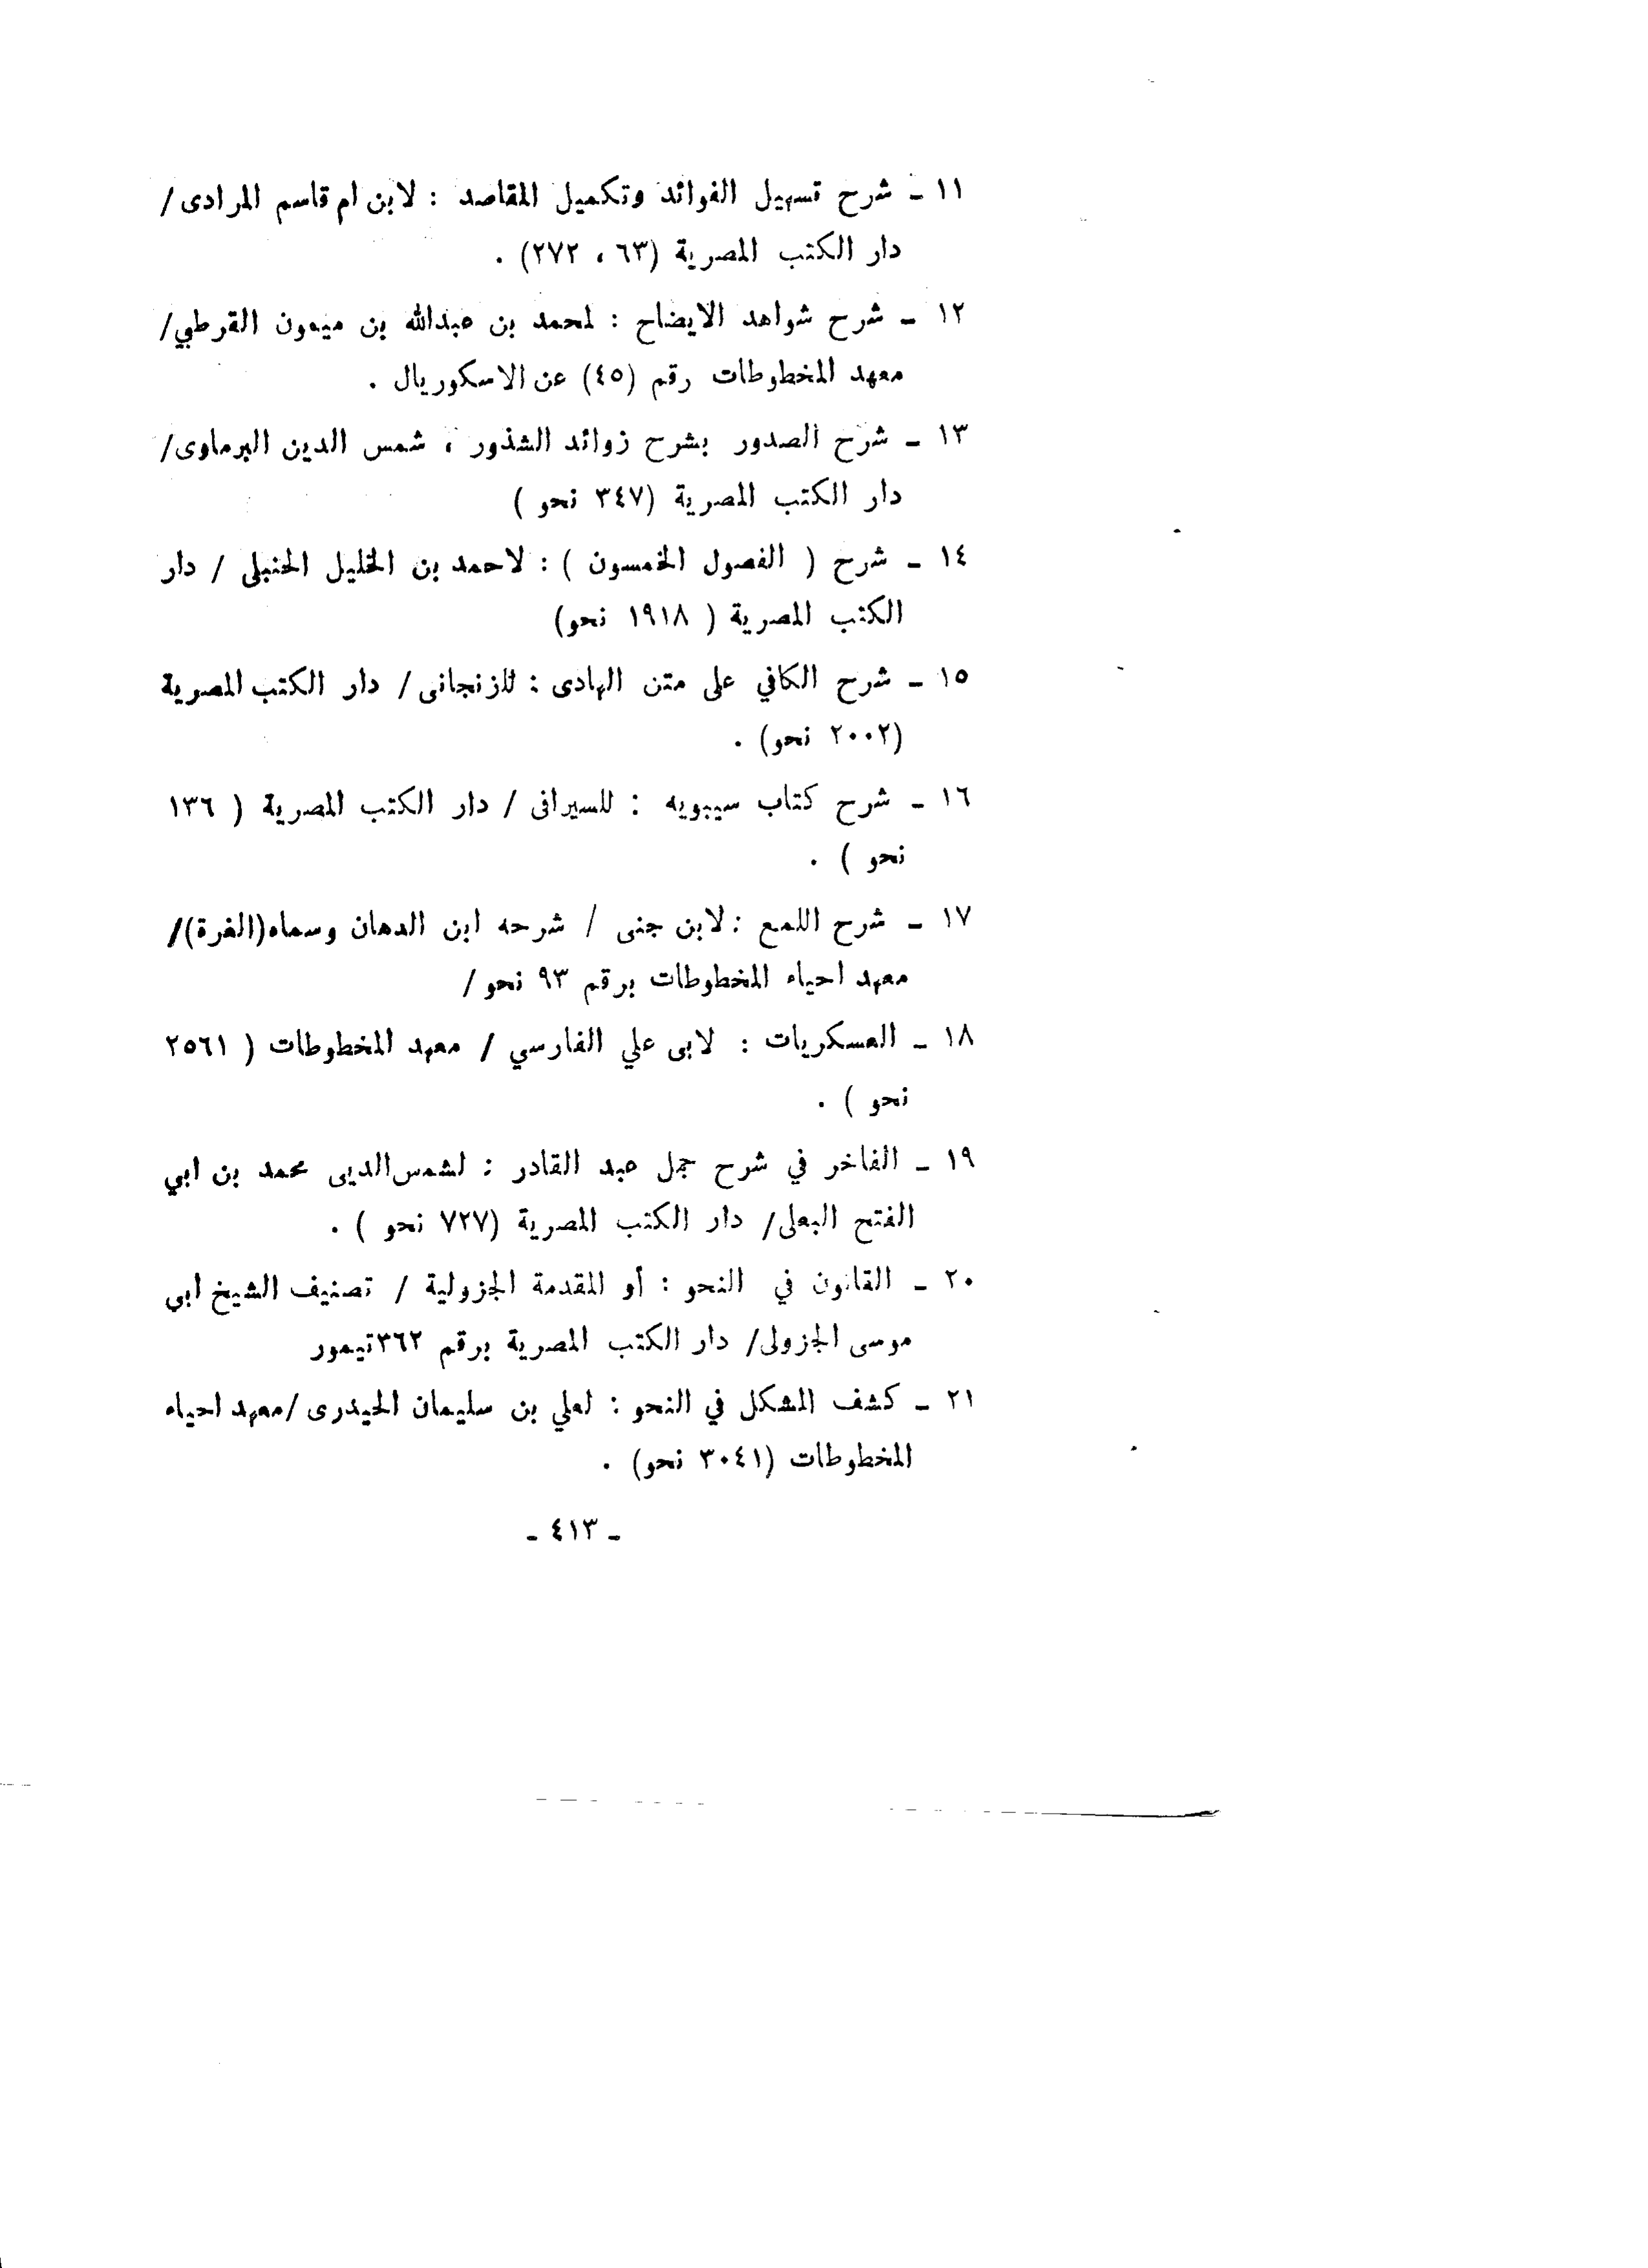 ١١ ـ شرح تسهيل الفوائد وتكميل المقاصد : لابن ام قاسم المرادى/
دار الكتب المصرية (٦٣ ، ٢٧٢) .
١٢ ـ شرح شواهد الايضاح : لمحمد بن عبدالله بن ميمون القرطبي/
معهد المخطوطات رقم (٤٥) عن الاسكوريال .
١٣ ـ شرح الصدور بشرح زوائد الشذور ، شمس الدين البرماوى/
دار الكتب المصرية (٣٤٧ نحو )
١٤ ـ شرح ( الفصول الخمسون ) : لاحمد بن الخليل الحنبلى / دار
الكتب المصرية ( ١٩١٨ نحو)
١٥ ـ شرح الكافي على متن الهادى : للزنجانى/ دار الكتب المصرية
(٢٠٠٢ نحو) .
١٦ ـ شرح كتاب سيبويه : للسيرافى / دار الكتب المصرية ( ١٣٦
نحو ) .
١٧ ـ شرح اللمع : لابن جنى / شرحه ابن الدهان وسماه(الغرة)/
معهد احياء المخطوطات برقم ٩٣ نحو/
١٨ ـ العسكريات : لابى علي الفارسي / معهد المخطوطات ( ٢٥٦١
نحو ) .
١٩ ـ الفاخر في شرح جمل عبد القادر : لشمس‌الديى محمد بن ابي
الفتح البعلى/ دار الكتب المصرية (٧٢٧ نحو ) .
٢٠ ـ القانون في النحو : أو المقدمة الجزولية / تصنيف الشيخ ابى
موسى الجزولى/ دار الكتب المصرية برقم ٣٦٢تيمور
٢١ ـ كشف المشكل في النحو : لعلي بن سليمان الحيدرى/معهد احياء
المخطوطات (٣٠٤١ نحو) .
ـ ٤١٣ ـ